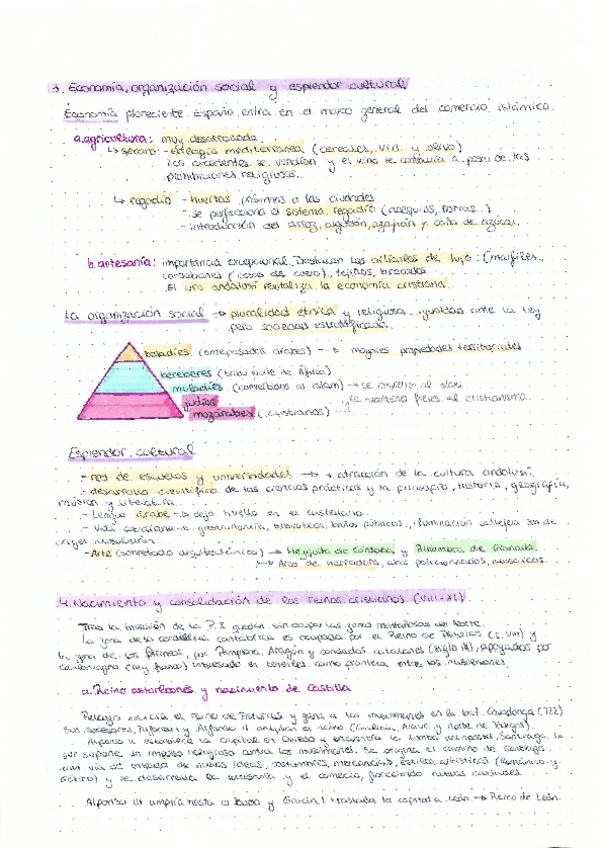 3. Economía, organización social y esplendor cultural
Economía floreciente. España entra en el marco general del comercio islámico.
a. agricultura: muy desarrollada
↳ secano: - trilogía mediterránea (cereales, vid y olivo)
Los excedentes se vendían y el vino se consumía a pesar de las
prohibiciones religiosas.
↳ regadío - huertas próximas a las ciudades
- se perfecciona el sistema regadío (acequias, norias..)
- introducción del arroz, algodón, azafrán y caña de azúcar.
b. artesanía: importancia excepcional. Destacan los artículos de lujo: (marfiles,
cordobanes (cosas de cuero), tejidos, brocados
El oro andalusí revitaliza la economía cristiana.
La organización social → pluralidad étnica y religiosa. igualdad ante la ley
pero sociedad estratificada.
baladíes (antepasados árabes) → mayores propiedades territoriales
bereberes (tribu norte de África)
muladíes (convertidos al islam) → se al islam
judíos
mozárabes (cristianos) fieles al cristianismo.
Esplendor cultural
- red de escuelas y universidades → + atracción de la cultura andalusí.
- desarrollo científico de las ciencias prácticas y la filosofía, historia, geografía,
música y literatura
- Lengua árabe → dejó huella en el castellano
- Vida cotidiana → gastronomía, biblioteca, baños públicos, iluminación callejera son de
origen musulmán
- Arte (sobretodo arquitectónico) → Mezquita de Córdoba y Alhambra de Granada
↳ Arco de herradura, arcos polilobulados, mosaicos.
4. Nacimiento y consolidación de los reinos cristianos (VIII-XI)
Tras la invasión de la P.I quedan sin ocupar las zonas montañosas del Norte.
La zona de la cordillera cantábrica es ocupada por el Reino de Asturias (s. VIII) y
la zona de los Pirineos, por Pamplona, Aragón y condados catalanes (siglo IX), apoyados por
Carlomagno (rey franco) interesado en tenerles como frontera ante los musulmanes.
a. Reino astorleones y nacimiento de Castilla
Pelayo el reino de Asturias y gana a los musulmanes en la bat. Covadonga (722)
Sus sucesores, Alfonso I y Alfonso II amplían el reino (Galicia, Álava y norte de Burgos).
Alfonso II establece la capital en Oviedo y encuentra la tumba del apóstol Santiago, lo
que supone un impulso religioso contra los musulmanes. Se origina el camino de Santiago
como vía de entrada de nuevas ideas, costumbres, mercancías, estilos artísticos (Románico y
Gótico) y se desarrolla la artesanía y el comercio, floreciendo nuevas ciudades.
Alfonso III amplía hasta el Duero y García I traslada la capital a León → Reino de León.